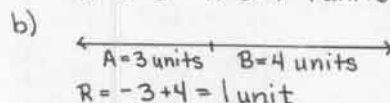 b)
A=3 units B=4 units
R = -3+4 = 1 unit